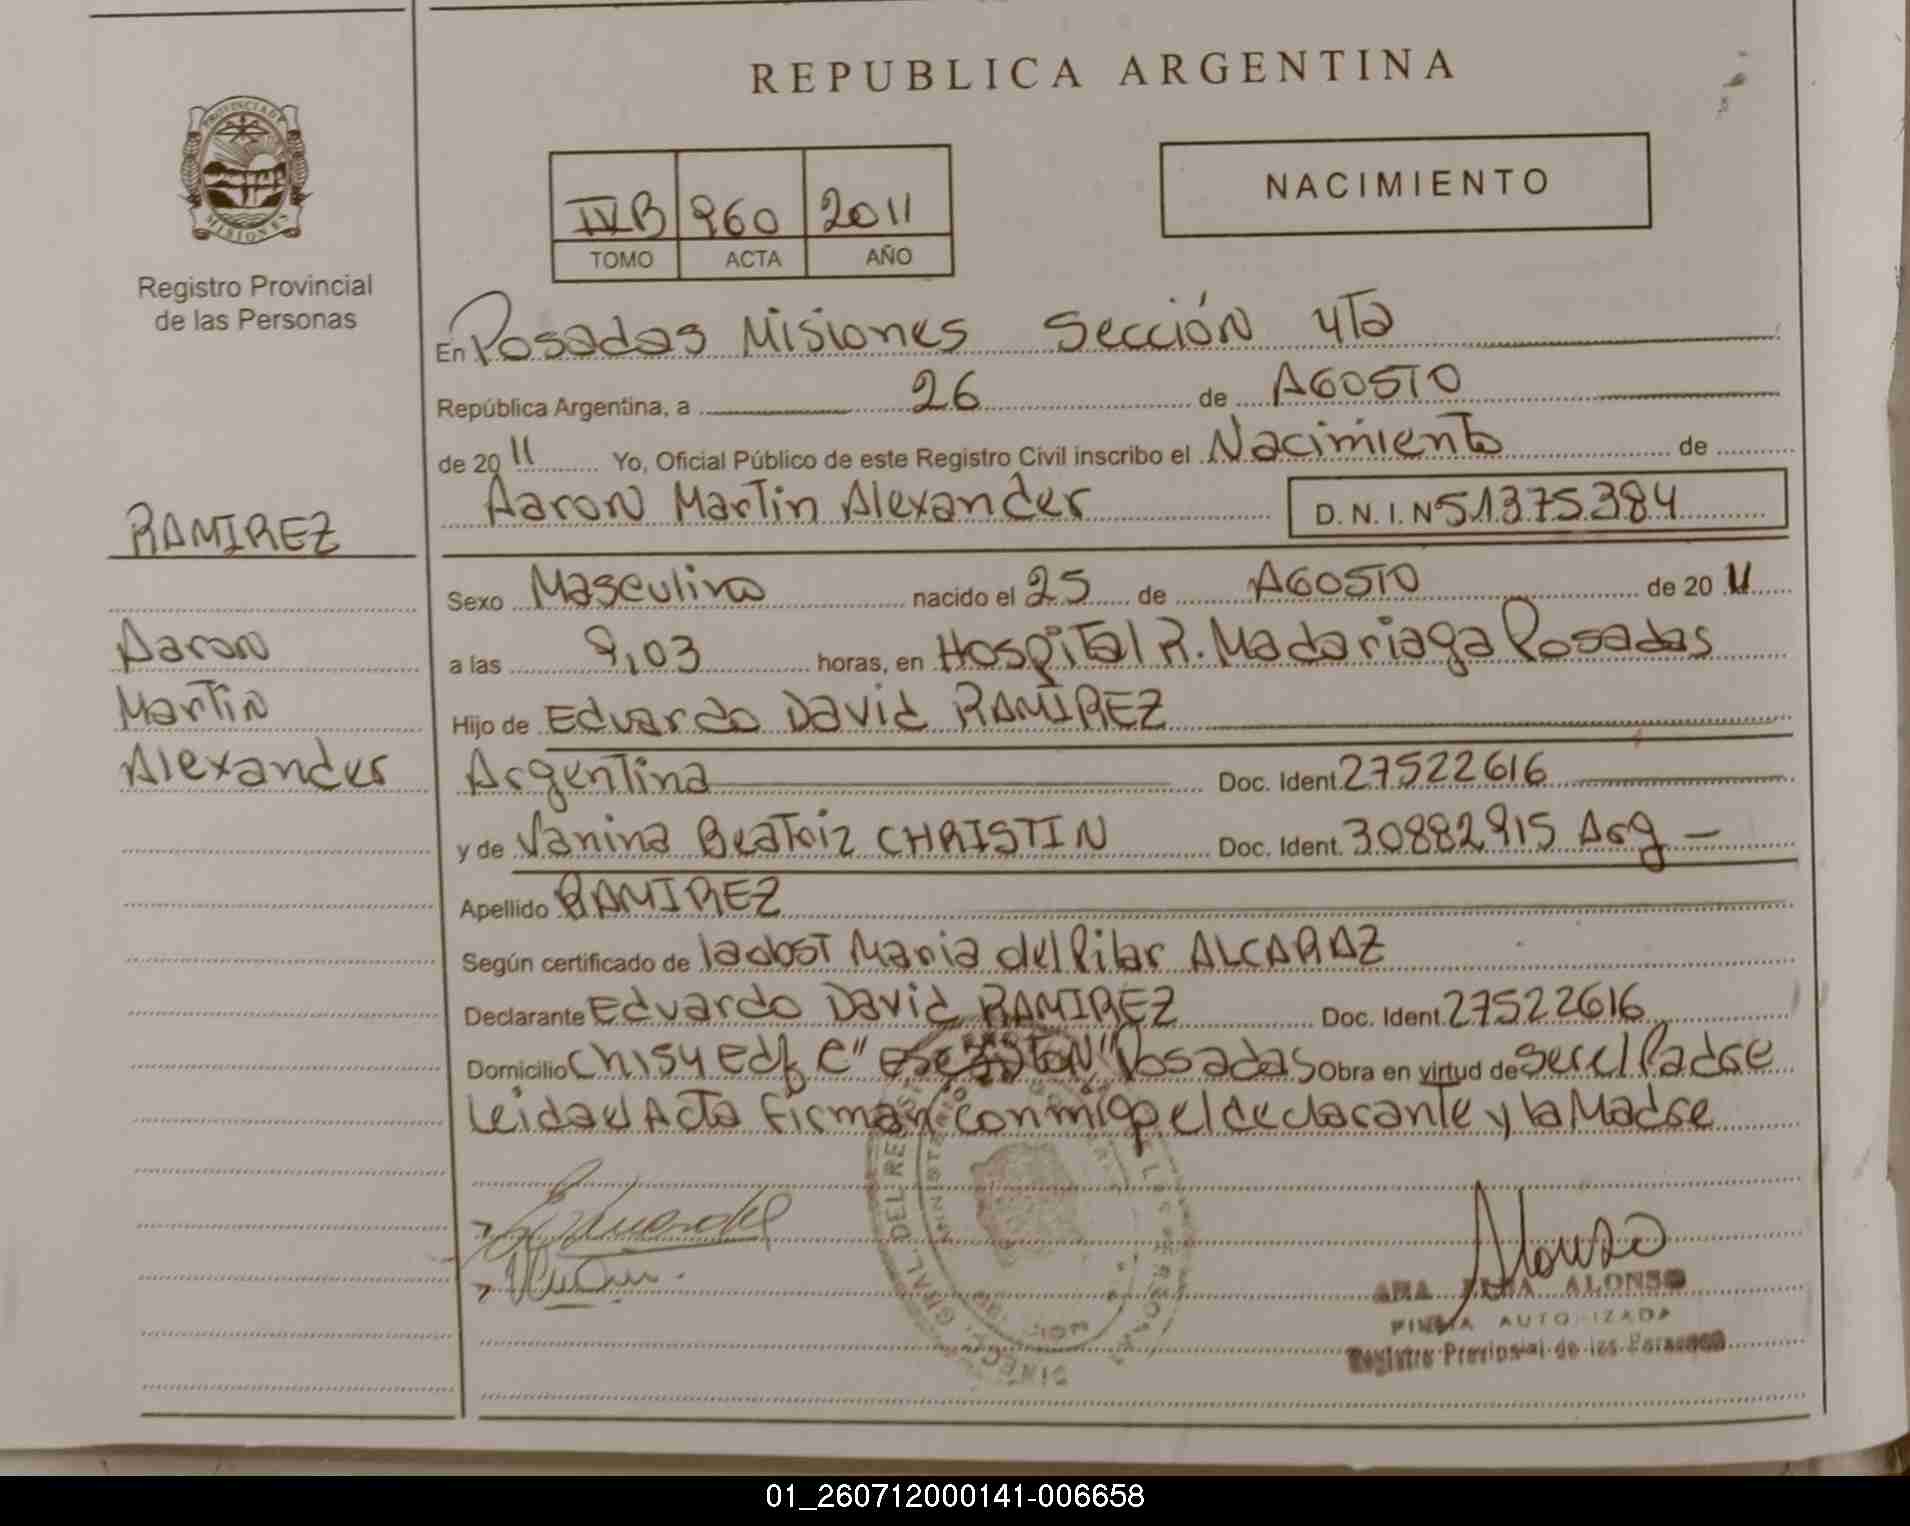 REPUBLICA ARGENTINA
PROVINCIA DE MISIONES
Registro Provincial
de las Personas
IVB 960 2011
TOMO ACTA AÑO
NACIMIENTO
En Posadas Misiones Sección 4Ta
República Argentina, a 26 de AGOSTO
de 2011 Yo, Oficial Público de este Registro Civil inscribo el Nacimiento de
Aaron Martin Alexander D. N. I. N 51375384
RAMIREZ
Aaron
Martin
Alexander
Sexo Masculino nacido el 25 de AGOSTO de 2011
a las 9,03 horas, en Hospital R. Madariaga Posadas
Hijo de Eduardo David RAMIREZ
Argentina Doc. Ident. 27522616
y de Vanina Beatriz CHRISTIN Doc. Ident. 30882915 Arg —
Apellido RAMIREZ
Según certificado de la obst Maria del Pilar ALCARAZ
Declarante Eduardo David RAMIREZ Doc. Ident. 27522616
Domicilio Ch 154 edf C" Posadas Obra en virtud de ser el Padre
Leida el Acta Firman conmigo el declarante y la Madre
Alonso
ANA ALONSO
FIRMA AUTORIZADA
Registro Provincial de las Personas
01_260712000141-006658